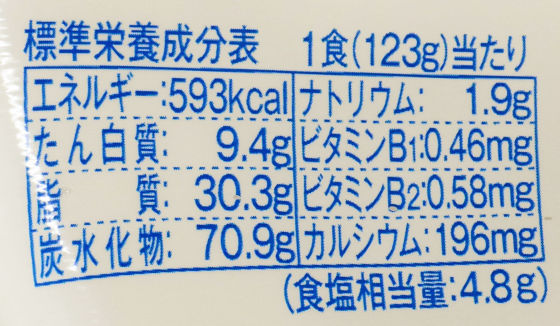 標準栄養成分表 1食(123g)当たり
エネルギー:593kcal ナトリウム: 1.9g
たん白質: 9.4g ビタミンB1:0.46mg
脂質: 30.3g ビタミンB2:0.58mg
炭水化物: 70.9g カルシウム:196mg
(食塩相当量:4.8g)